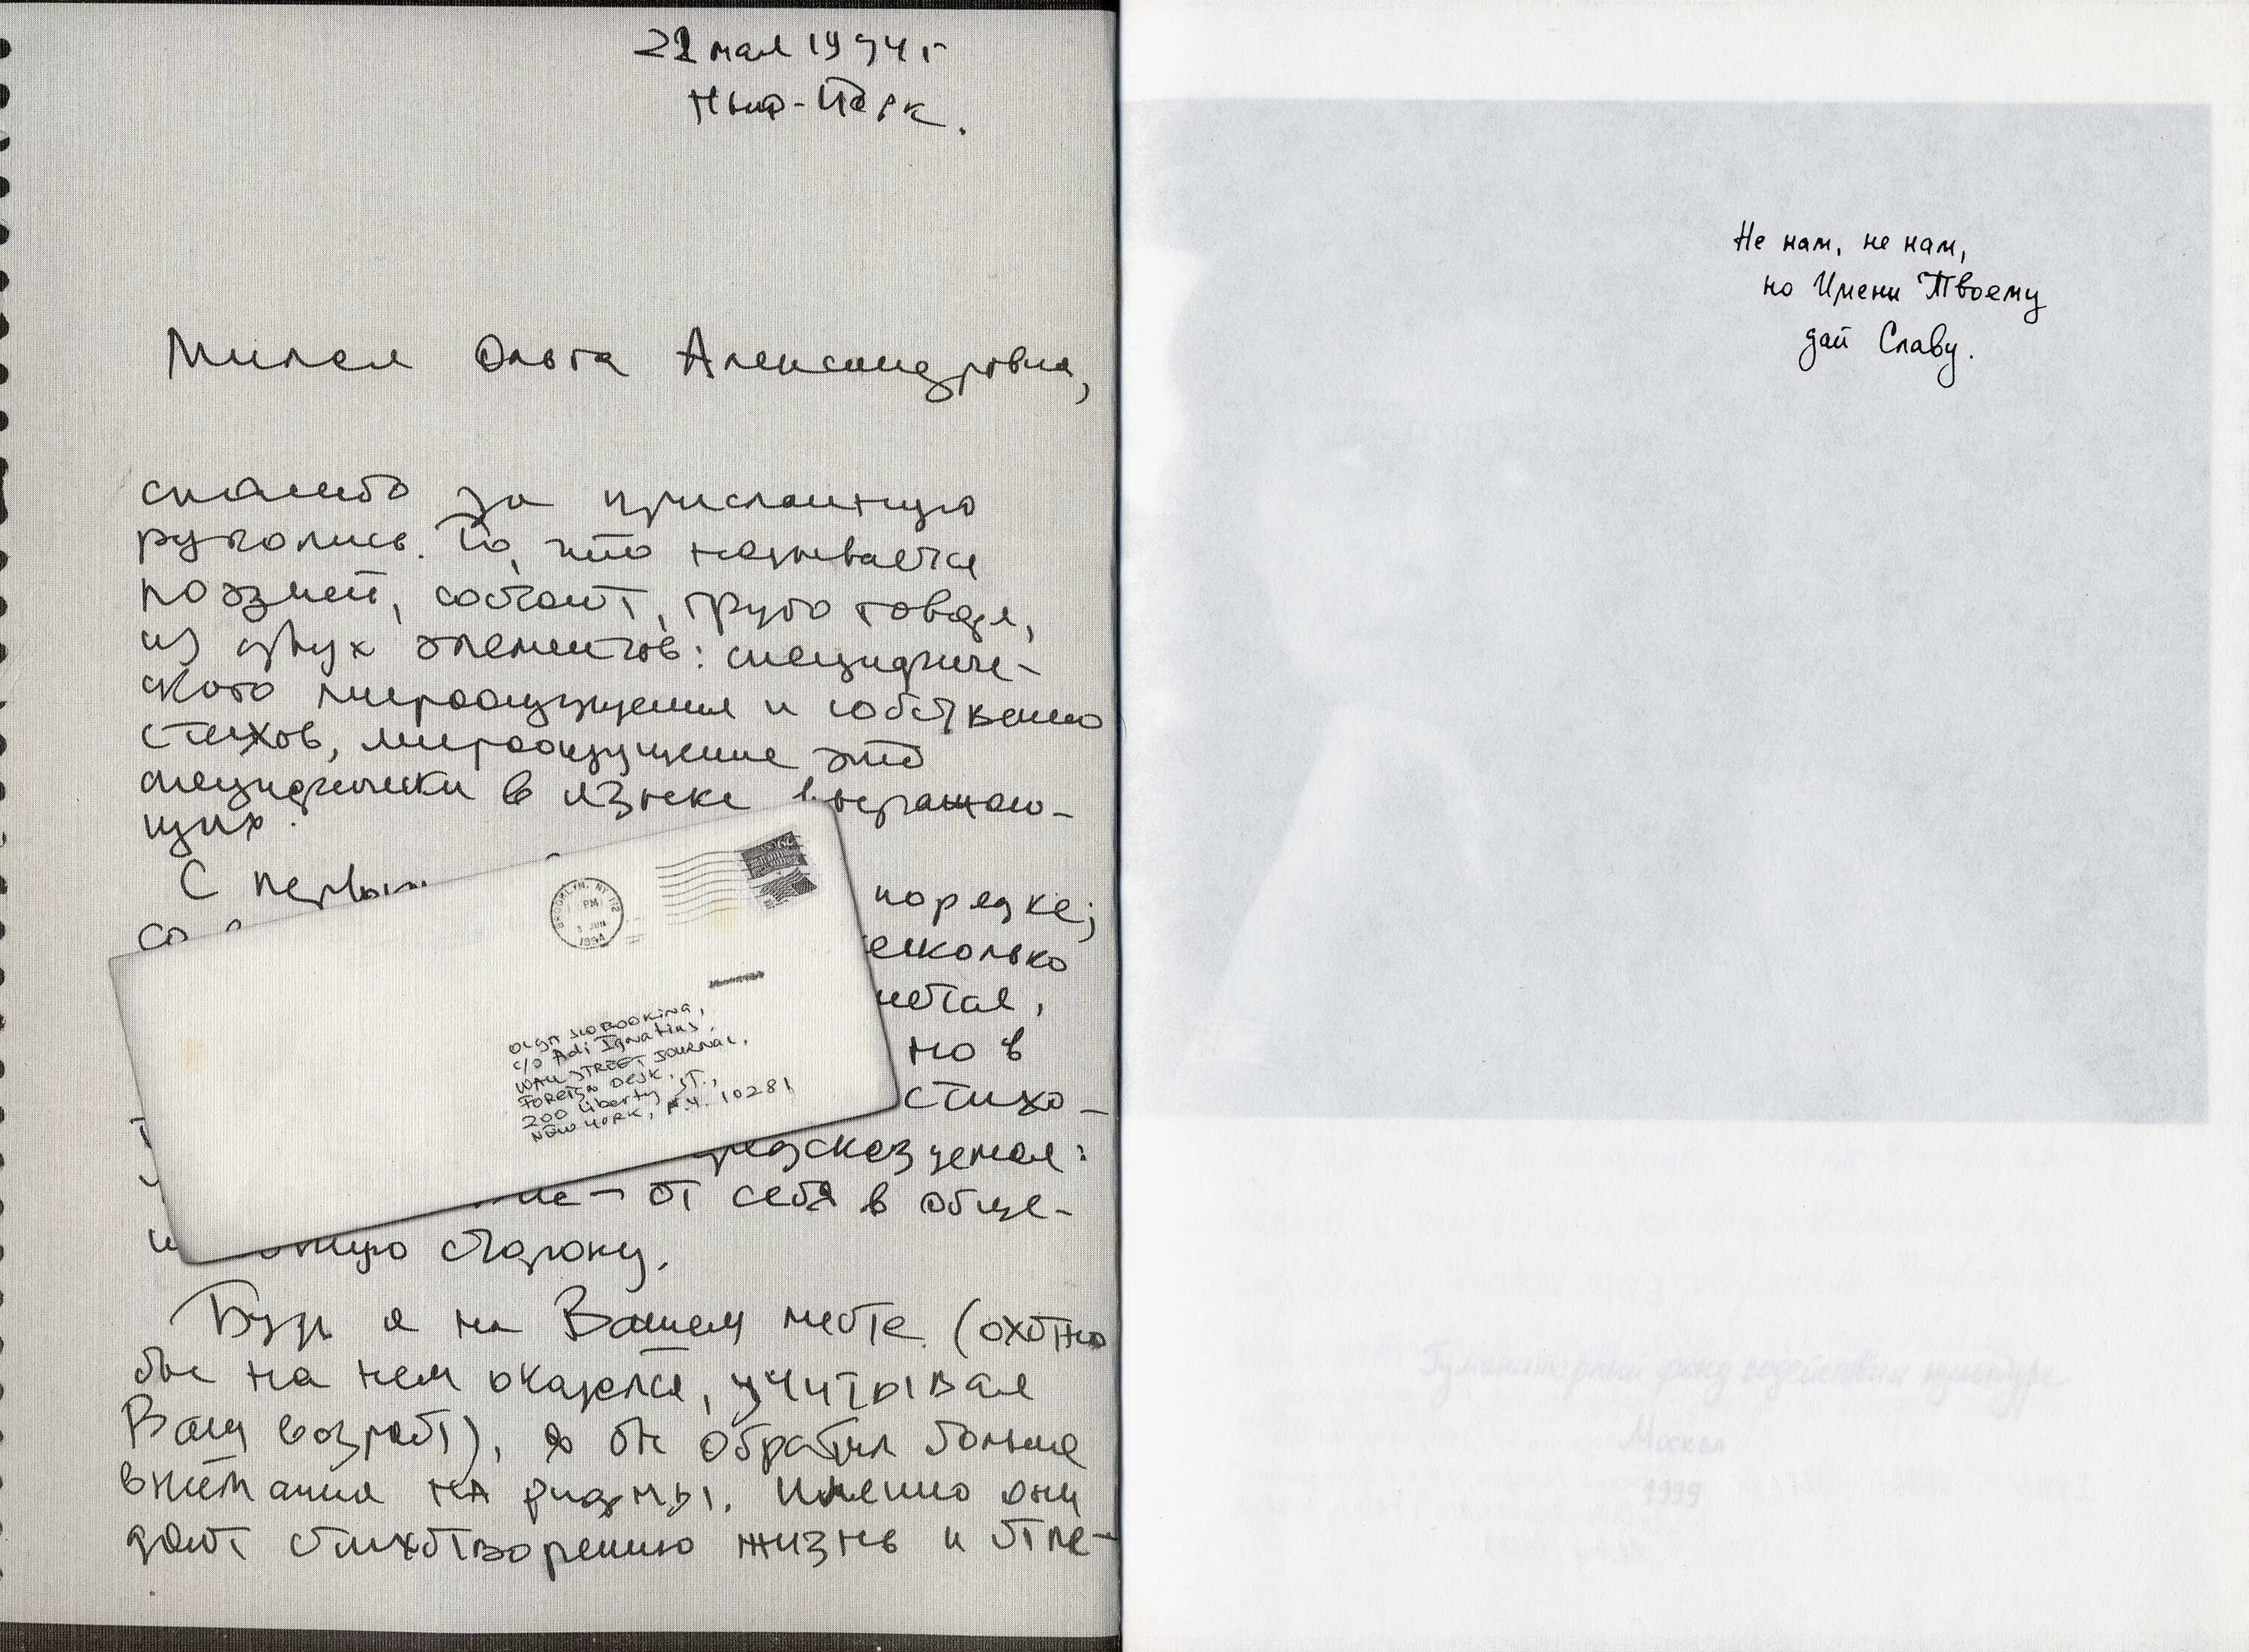 21 мая 1994 г
Нью-Йорк.
Милая Ольга Александровна,
спасибо за присланную
рукопись. То, что называется
поэзией, состоит, грубо говоря,
из двух элементов: специфиче-
ского мироощущения и собственно
стихов, мироощущение это
специфически в языке выражаю-
щих.
С первым порядке;
со
несколько
но в
стихо-
предсказуемая:
от себя в обще-
сторону.
Будь я на Вашем месте (охотно
бы на нем оказался, учитывая
Ваш возраст), я бы обратил больше
внимания на рифмы. Именно они
дают стихотворению жизнь и отле-
BROOKLYN, NY 112
PM
3 JUN
1994
OLGA SLOBODKINA,
c/o Adi Ignatius,
WALL STREET JOURNAL,
FOREIGN DESK,
200 Liberty ST.,
NEW YORK, N.Y. 10281
Не нам, не нам,
но Имени Твоему
дай Славу.
Гуманитарный фонд содействия культуре
Москва
1999